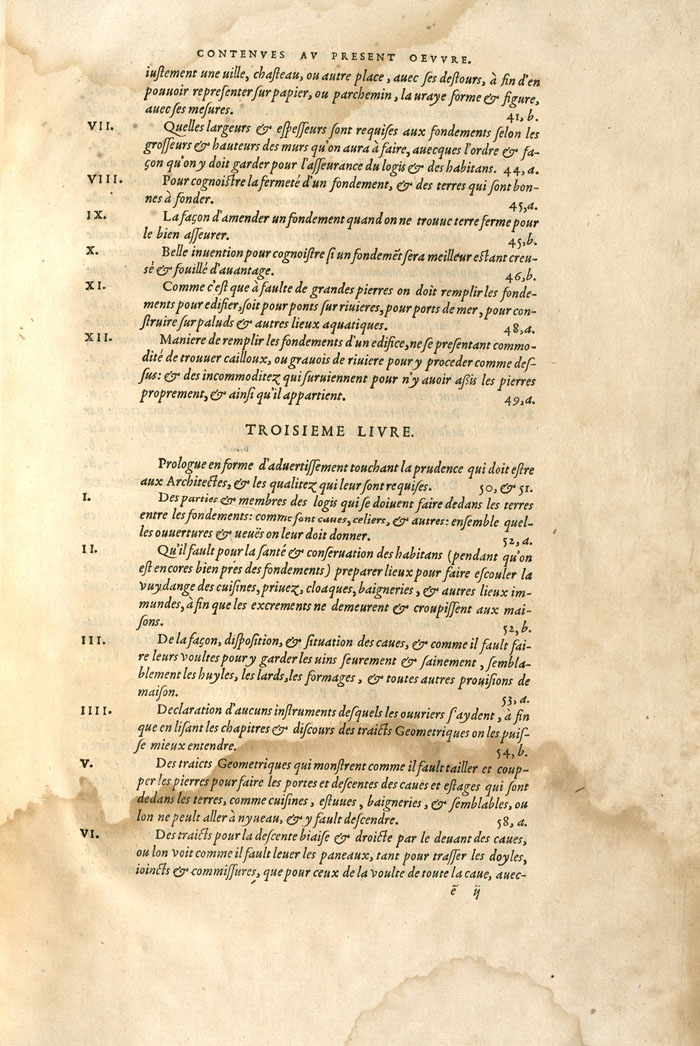 CONTENVES AV PRESENT OEVVRE.
iuſtement une uille, chaſteau, ou autre place, auec ſes deſtours, à fin d'en
pouuoir repreſenter ſur papier, ou parchemin, la uraye forme & figure,
auec ſes meſures. 41,b.
VII. Quelles largeurs & eſpeſſeurs ſont requiſes aux fondements ſelon les
groſſeurs & hauteurs des murs qu'on aura à faire, auecques l'ordre & fa-
çon qu'on y doit garder pour l'aſſeurance du logis & des habitans. 44,a.
VIII. Pour cognoiſtre la fermeté d'un fondement, & des terres qui ſont bon-
nes à fonder. 45,a.
IX. La façon d'amender un fondement quand on ne trouue terre ferme pour
le bien aſſeurer. 45,b.
X. Belle inuention pour cognoiſtre ſi un fondemẽt ſera meilleur eſtant creu-
sé & fouillé d'auantage. 46,b.
XI. Comme c'eſt que à faulte de grandes pierres on doit remplir les fonde-
ments pour edifier, ſoit pour ponts ſur riuieres, pour ports de mer, pour con-
ſtruire ſur paluds & autres lieux aquatiques. 48,a.
XII. Maniere de remplir les fondements d'un edifice, ne ſe preſentant commo-
dité de trouuer cailloux, ou grauois de riuiere pour y proceder comme deſ-
ſus: & des incommoditez qui ſuruiennent pour n'y auoir aßis les pierres
proprement, & ainſi qu'il appartient. 49,a.
TROISIEME LIVRE.
Prologue en forme d'aduertiſſement touchant la prudence qui doit eſtre
aux Architectes, & les qualitez qui leur ſont requiſes. 50, & 51.
I. Des parties & membres des logis qui ſe doiuent faire dedans les terres
entre les fondements: comme ſont caues, celiers, & autres: enſemble quel-
les ouuertures & ueuës on leur doit donner. 52,a.
II. Qu'il fault pour la santé & conſeruation des habitans (pendant qu'on
eſt encores bien pres des fondements) preparer lieux pour faire eſcouler la
vuydange des cuiſines, priuez, cloaques, baigneries, & autres lieux im-
mundes, à fin que les excrements ne demeurent & croupiſſent aux mai-
ſons. 52,b.
III. De la façon, diſpoſition, & ſituation des caues, & comme il fault fai-
re leurs voultes pour y garder les uins ſeurement & ſainement, ſembla-
blement les huyles, les lards, les formages, & toutes autres prouiſions de
maiſon. 53,a.
IIII. Declaration d'aucuns inſtruments deſquels les ouuriers ſ'aydent, à fin
que en liſant les chapitres & diſcours des traicts Geometriques on les puiſ-
ſe mieux entendre. 54,b.
V. Des traicts Geometriques qui monſtrent comme il fault tailler et coup-
per les pierres pour faire les portes et deſcentes des caues et eſtages qui ſont
dedans les terres, comme cuiſines, eſtuues, baigneries, & ſemblables, ou
lon ne peult aller à nyueau, & y fault deſcendre. 58,a.
VI. Des traicts pour la deſcente biaiſe & droicte par le deuant des caues,
ou lon voit comme il fault leuer les paneaux, tant pour traſſer les doyles,
ioincts & commiſſures, que pour ceux de la voulte de toute la caue, auec-
ẽ ij